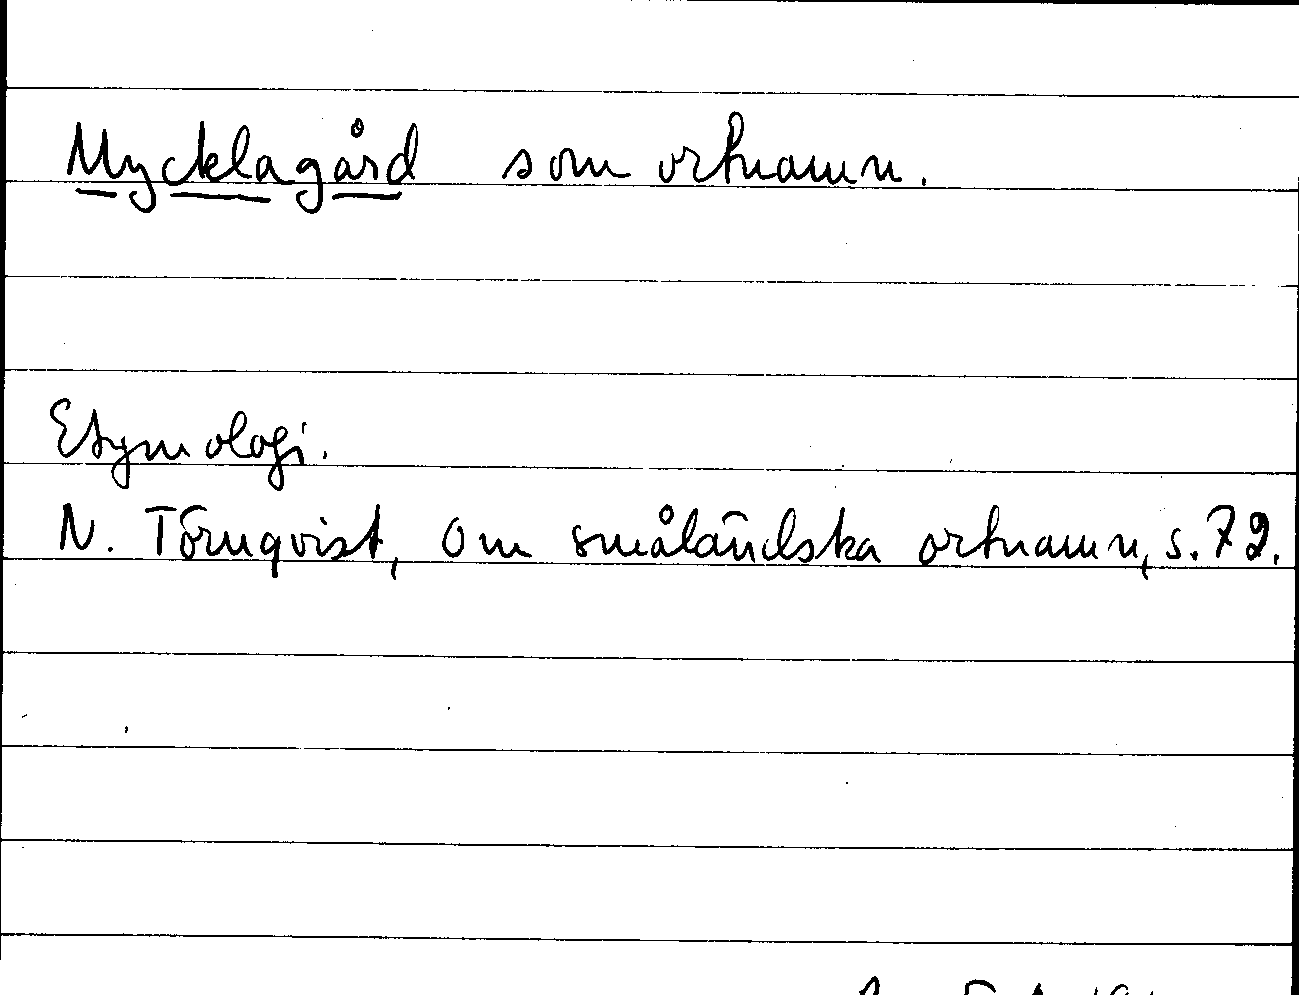 Mycklagård som ortnamn.
Etymologi.
N. Törnqvist, Om småländska ortnamn, s. 72.